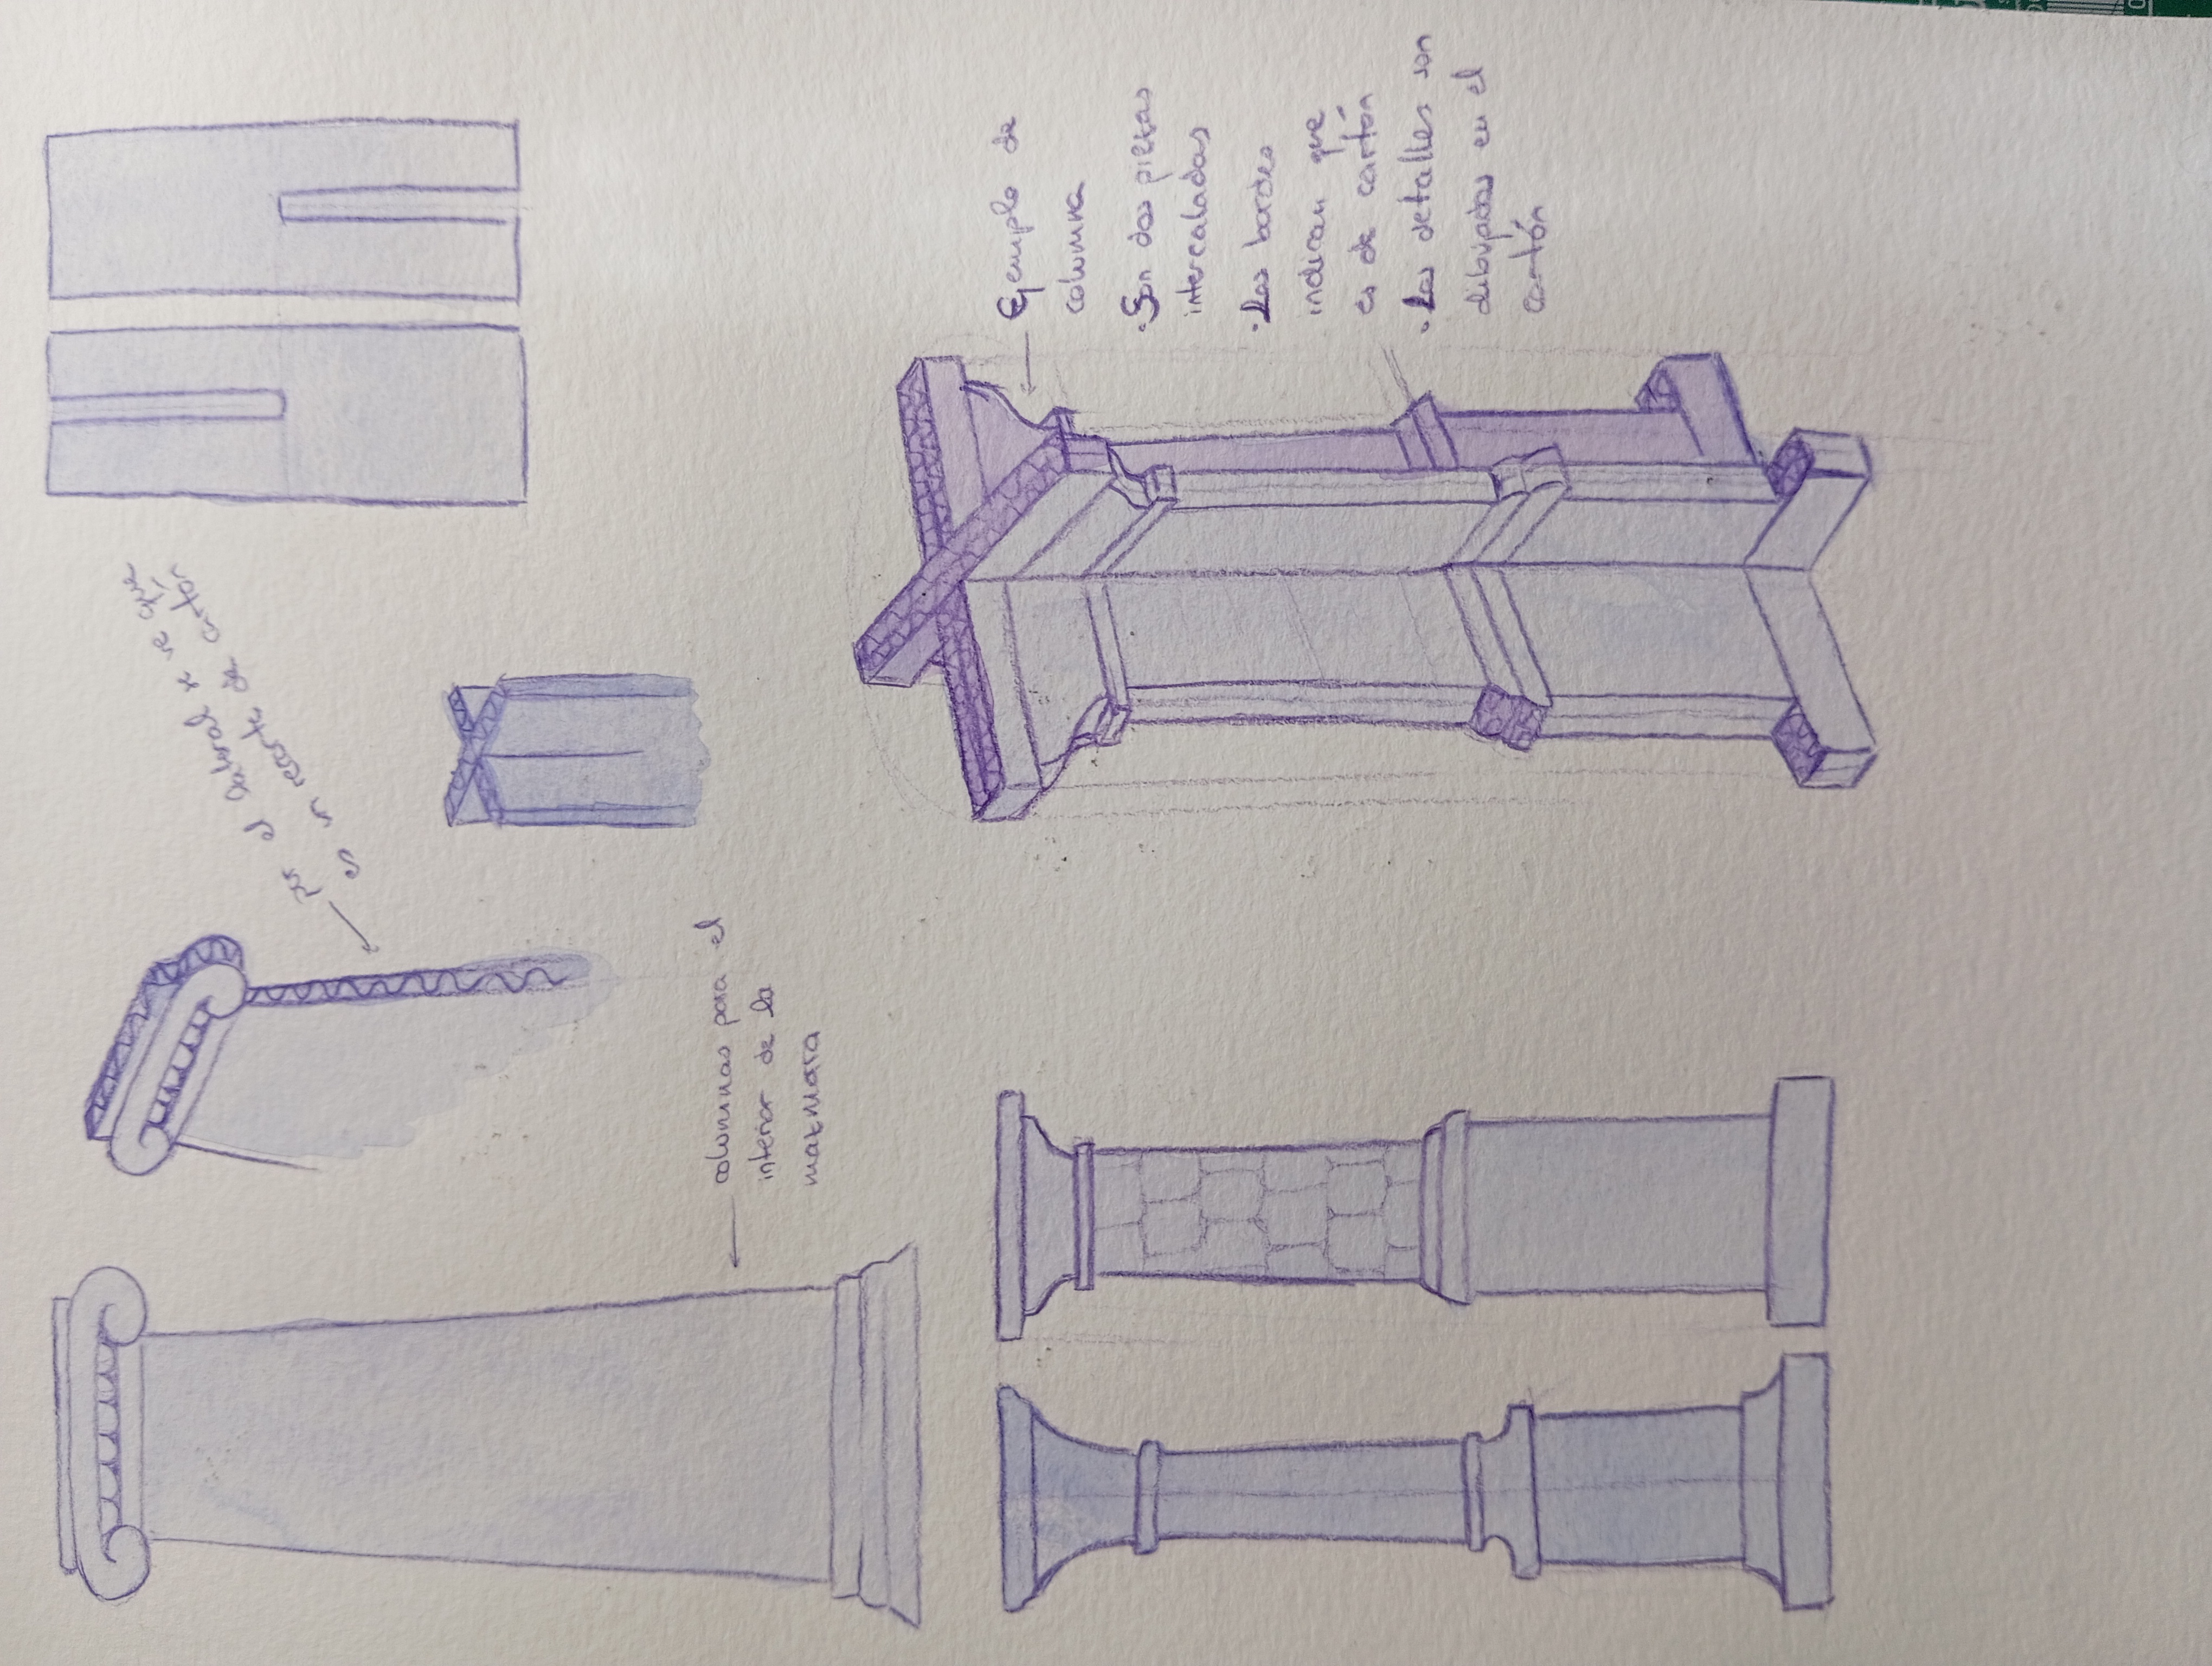 por el lateral se ve que
es un recorte de cartón
columnas para el
interior de la
mazmora
Ejemplo de
columna
· Son dos piezas
intercaladas
· Los bordes
indican que
es de cartón
· Los detalles son
dibujados en el
cartón